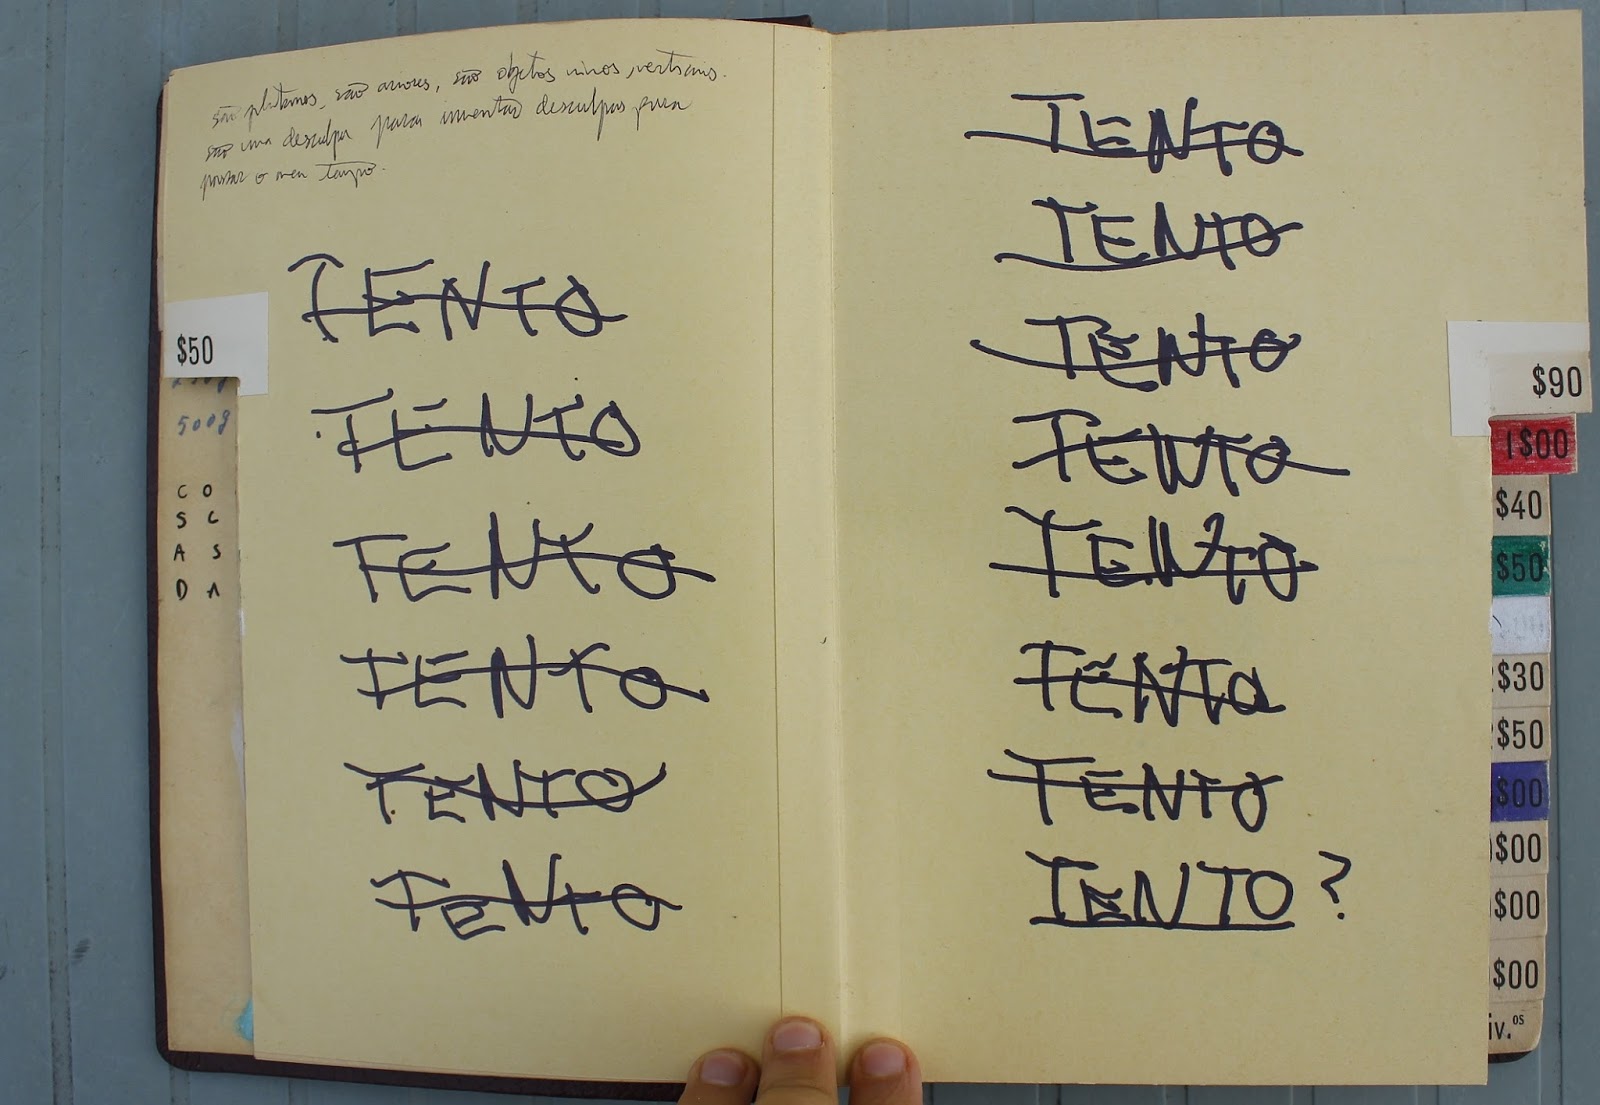 são plátanos, são arvores, são objetos vivos, verticais.
são uma desculpa para inventar desculpas para
passar o meu tempo.
TENTO
TENTO
TENTO
TENTO
TENTO
TENTO
$50
500g
C O
S C
A S
D A
TENTO
TENTO
TENTO
TENTO
TENTO
TENTO
TENTO
TENTO ?
$90
1$00
$40
$50
$30
$50
$00
$00
$00
$00
iv.os